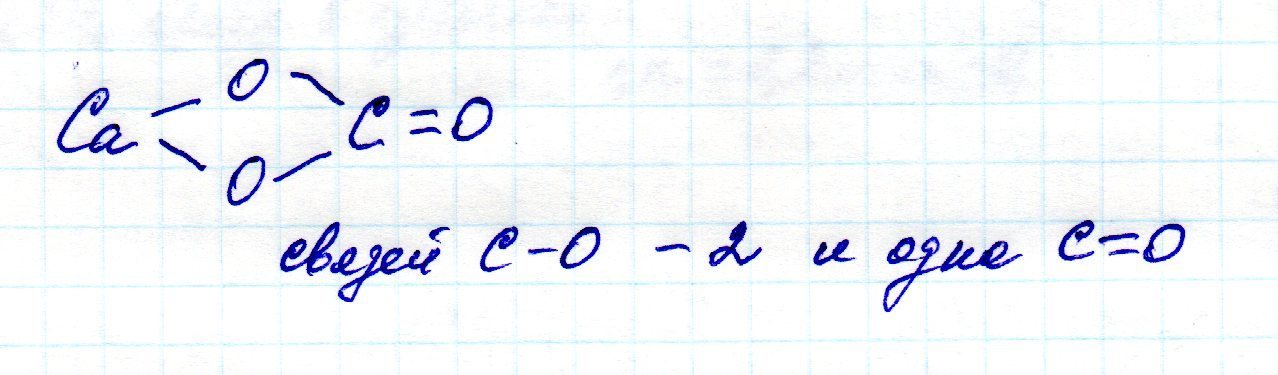 O
Ca C=O
O
связей C-O - 2 и одна C=O